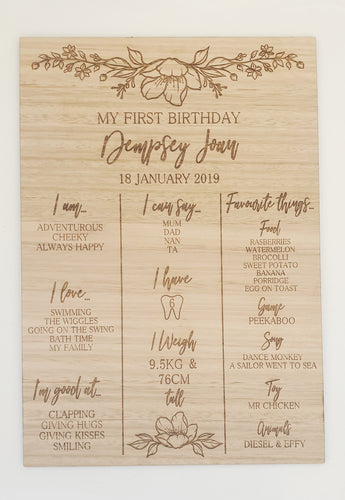 MY FIRST BIRTHDAY
Dempsey Joan
18 JANUARY 2019
I am...
ADVENTUROUS
CHEEKY
ALWAYS HAPPY
I love...
SWIMMING
THE WIGGLES
GOING ON THE SWING
BATH TIME
MY FAMILY
I'm good at...
CLAPPING
GIVING HUGS
GIVING KISSES
SMILING
I can say...
MUM
DAD
NAN
TA
I have
6
I Weigh
9.5KG &
76CM
tall
Favourite things...
Food
RASBERRIES
WATERMELON
BROCOLLI
SWEET POTATO
BANANA
PORRIDGE
EGG ON TOAST
Game
PEEKABOO
Song
DANCE MONKEY
A SAILOR WENT TO SEA
Toy
MR CHICKEN
Animals
DIESEL & EFFY